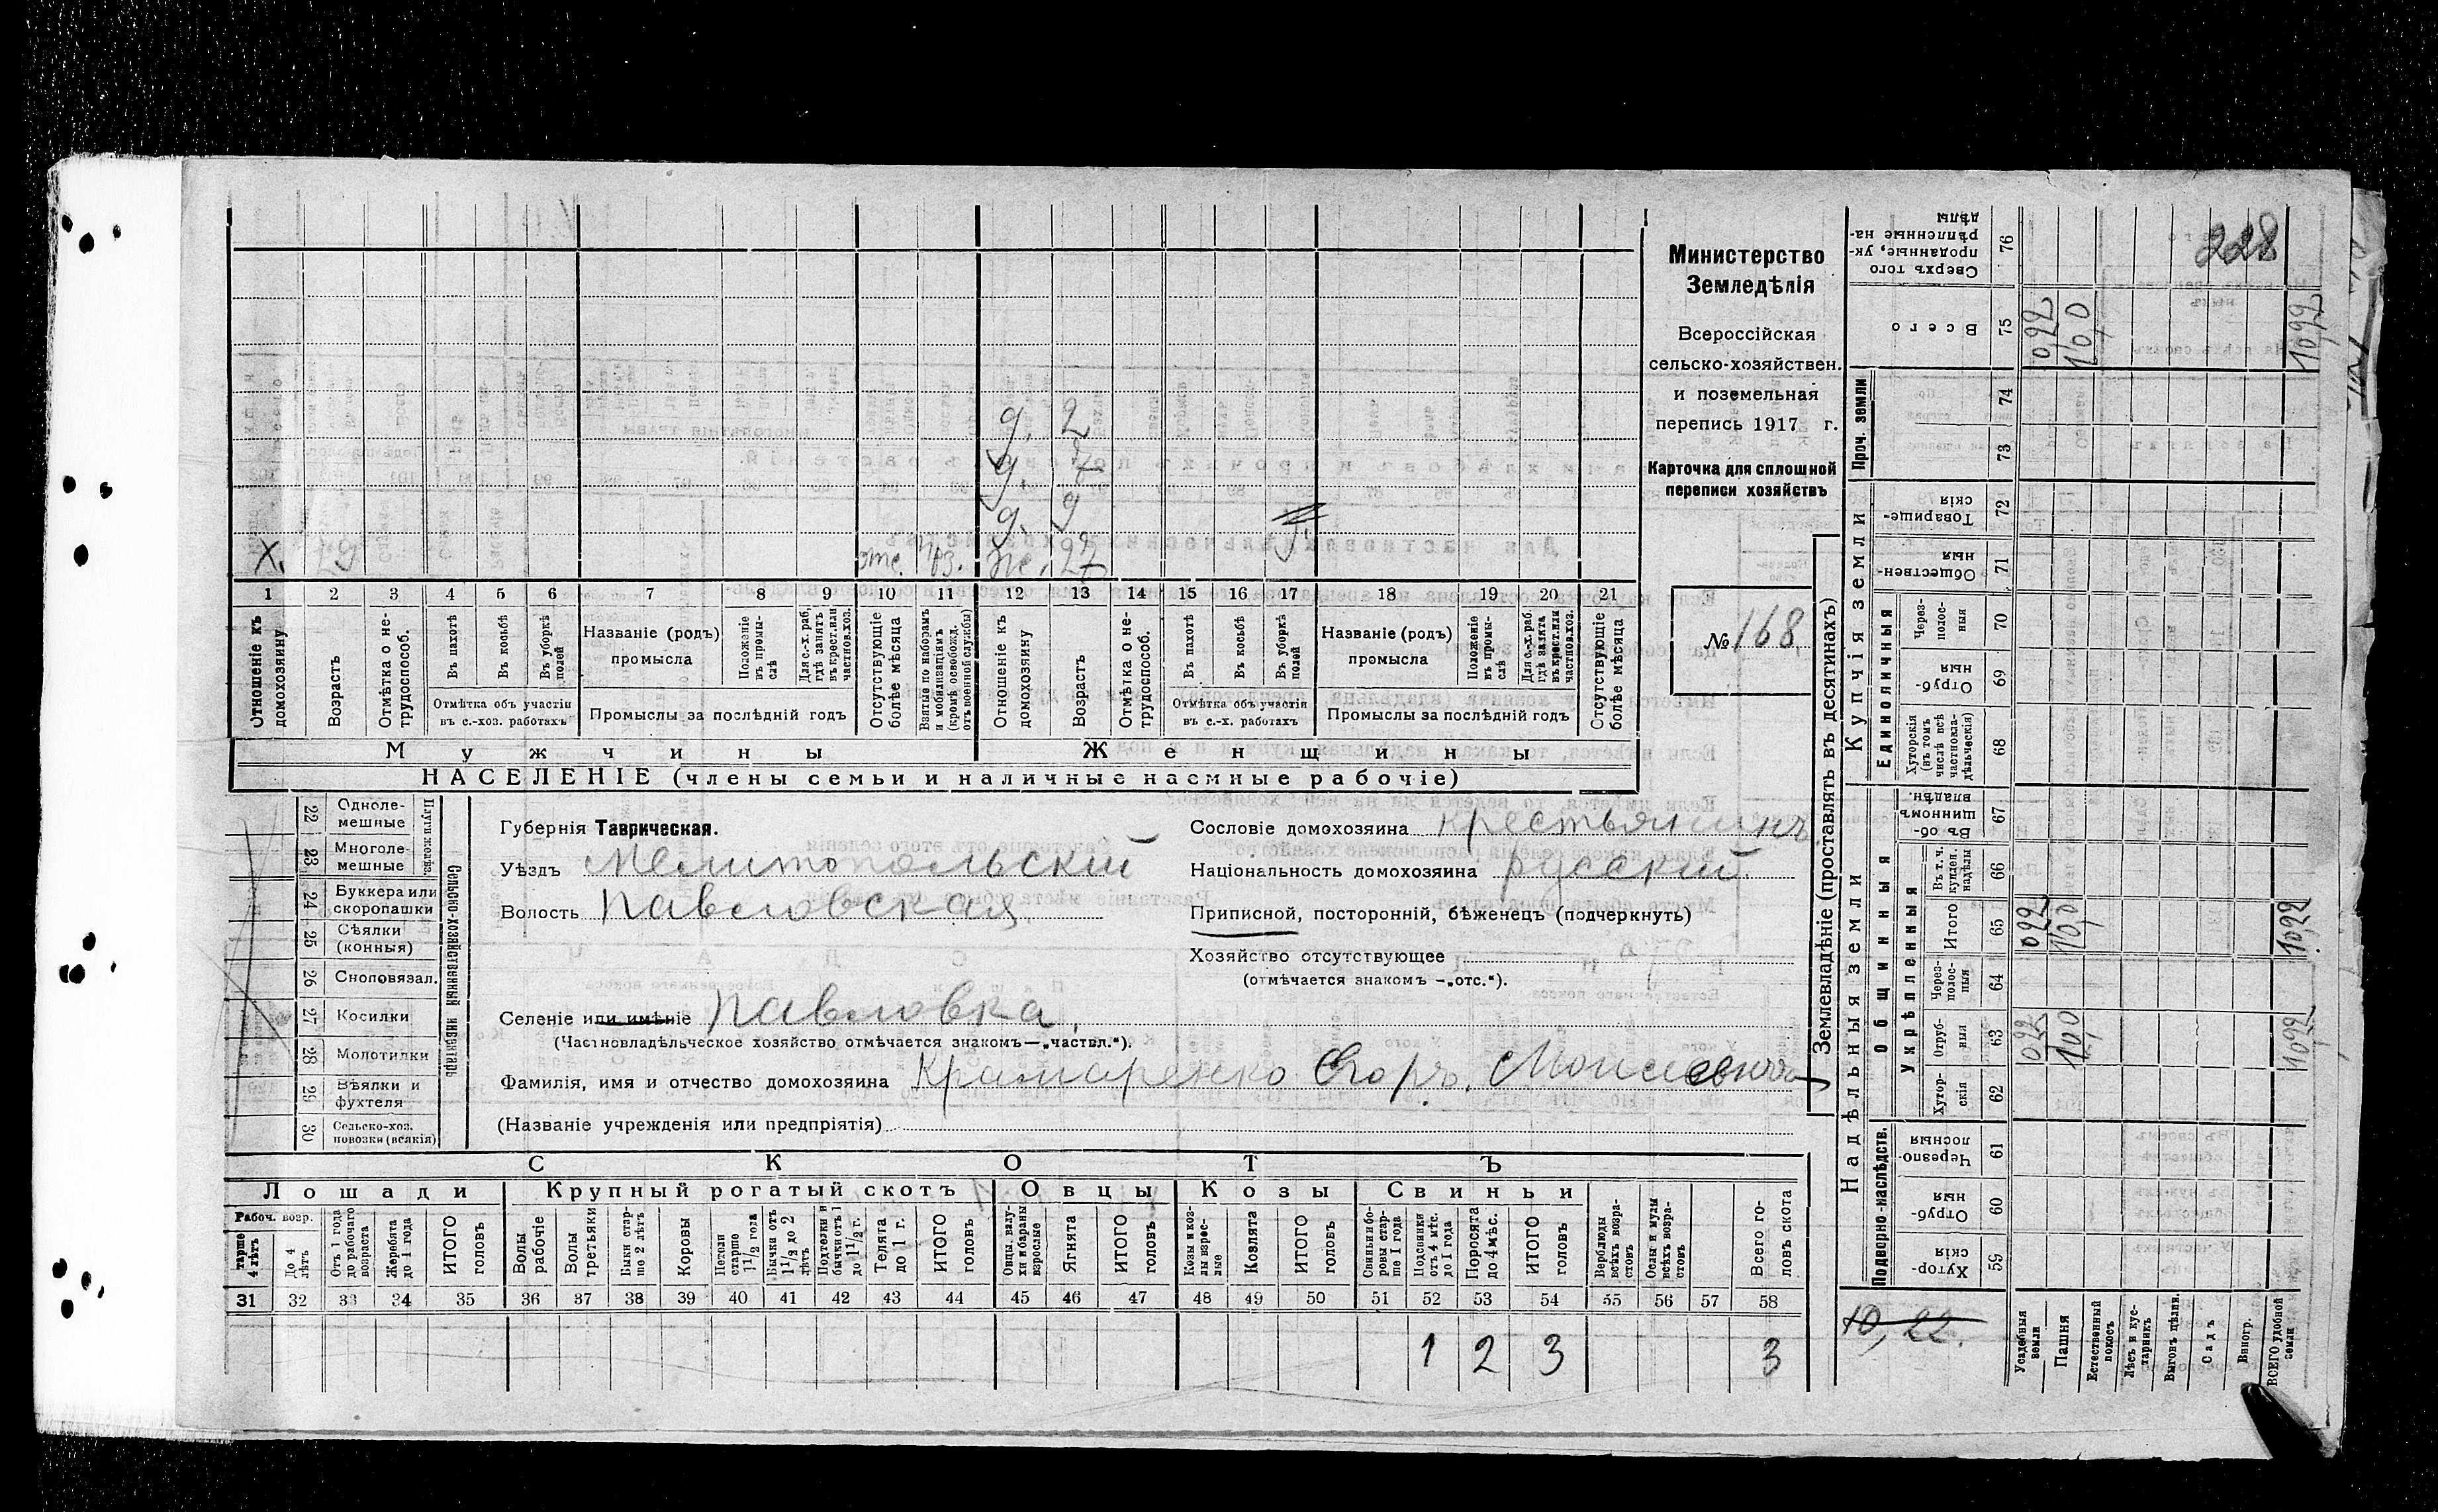 228
Министерство
Земледѣлія
Всероссійская
сельско-хозяйствен.
и поземельная
перепись 1917 г.
Карточка для сплошной
переписи хозяйствъ
№ 168
д. 2
д. 7
д. 9
Х. 29 отс. ж. 27
1 2 3 4 5 6 7 8 9 10 11 12 13 14 15 16 17 18 19 20 21
Отношеніе къ домохозяину
Возрастъ
Отмѣтка о не-трудоспособ.
Въ пахотѣ
Въ косьбѣ
Въ уборкѣ полей
Отмѣтка объ участіи
въ с.-хоз. работахъ
Названіе (родъ)
промысла
Положеніе въ промы-слѣ
Для с.-х. раб. гдѣ занятъ въ крест. или частновл. хоз.
Промыслы за послѣдній годъ
Отсутствующіе болѣе мѣсяца
Взятые по наборамъ и мобилизаціямъ (кромѣ освобожд. отъ военной службы)
Отношеніе къ домохозяину
Возрастъ
Отмѣтка о не-трудоспособ.
Въ пахотѣ
Въ косьбѣ
Въ уборкѣ полей
Отмѣтка объ участіи
въ с.-х. работахъ
Названіе (родъ)
промысла
Положеніе въ промы-слѣ
Для с.-х. раб. гдѣ занята въ крест. или частновл. хоз.
Промыслы за послѣдній годъ
Отсутствующіе болѣе мѣсяца
Мужчины Женщины
НАСЕЛЕНІЕ (члены семьи и наличные наемные рабочіе)
Сельско-хозяйственный инвентарь
Плуги желѣз.
22 Одноле-мешные
23 Многоле-мешные
24 Буккера или скоропашки
25 Сѣялки (конныя)
26 Сноповязал.
27 Косилки
28 Молотилки
29 Вѣялки и фухтеля
30 Сельско-хоз. повозки (всякія)
Губернія Таврическая.
Уѣздъ Мелитопольскій
Волость Павловская
Сословіе домохозяина крестьянинъ
Національность домохозяина русскій
Приписной, посторонній, бѣженецъ (подчеркнуть)
Хозяйство отсутствующее
(отмѣчается знакомъ –„отс.“).
Селеніе или имѣніе Павловка
(Частновладѣльческое хозяйство отмѣчается знакомъ—„частвл.“).
Фамилія, имя и отчество домохозяина Крамаренко Егоръ Моисеевичъ
(Названіе учрежденія или предпріятія)
СКОТЪ
Лошади Крупный рогатый скотъ Овцы Козы Свиньи
Рабоч. возр.
старше 4 лѣтъ
До 4 лѣтъ
Отъ 1 года до рабочаго возраста
Жеребята до 1 года
ИТОГО головъ
Волы рабочіе
Волы третьяки
Быки стар-ше 2 лѣтъ
Коровы
Нетели старше 1 1/2 года
Бычки отъ 1 1/2 до 2 лѣтъ
Подтелки и бычки отъ 1 до 1 1/2 г.
Телята до 1 г.
ИТОГО головъ
Овцы, валу-хи и бараны взрослые
Ягнята
ИТОГО головъ
Козы и коз-лы взрос-лые
Козлята
ИТОГО головъ
Свиньи и бо-ровы стар-ше 1 года
Подсвинки отъ 4 мѣс. до 1 года
Поросята до 4 мѣс.
ИТОГО головъ
Верблюды всѣхъ возра-стовъ
Ослы и мулы всѣхъ возра-стовъ
Всего го-ловъ скота
31 32 33 34 35 36 37 38 39 40 41 42 43 44 45 46 47 48 49 50 51 52 53 54 55 56 57 58
1 2 3 3
Землевладѣніе (проставлять въ десятинахъ)
Надѣльныя земли Купчія земли Проч. земли
Подворно-наслѣдств.
Общинныя
Укрѣпленныя
Единоличныя
Хутор-скія 59
Отруб-ныя 60
Черезпо-лосныя 61
Хутор-скія 62
Отруб-ныя 63 0,22 10,0 10,22
Через-полос-ныя 64
Итого 65 0,22 10,0 10,22
Въ т. ч. куплен. надѣлы 66
Въ об-щинномъ владѣн. 67
Хуторскія (въ томъ числѣ всѣ частновла-дѣльческія) 68
Отруб-ныя 69
Через-полос-ныя 70
Обществен-ныя 71
Товарище-скія 72
73
74
Всего 75 0,22 10,0 10,22
Сверхъ того проданные, ук-рѣпленные на-дѣлы 76
10,22.
Усадебныя земли
Пашня
Естественный покосъ
Лѣсъ и кус-тарникъ
Выгонъ цѣлин.
Садъ
Виногр.
ВСЕГО удобной земли